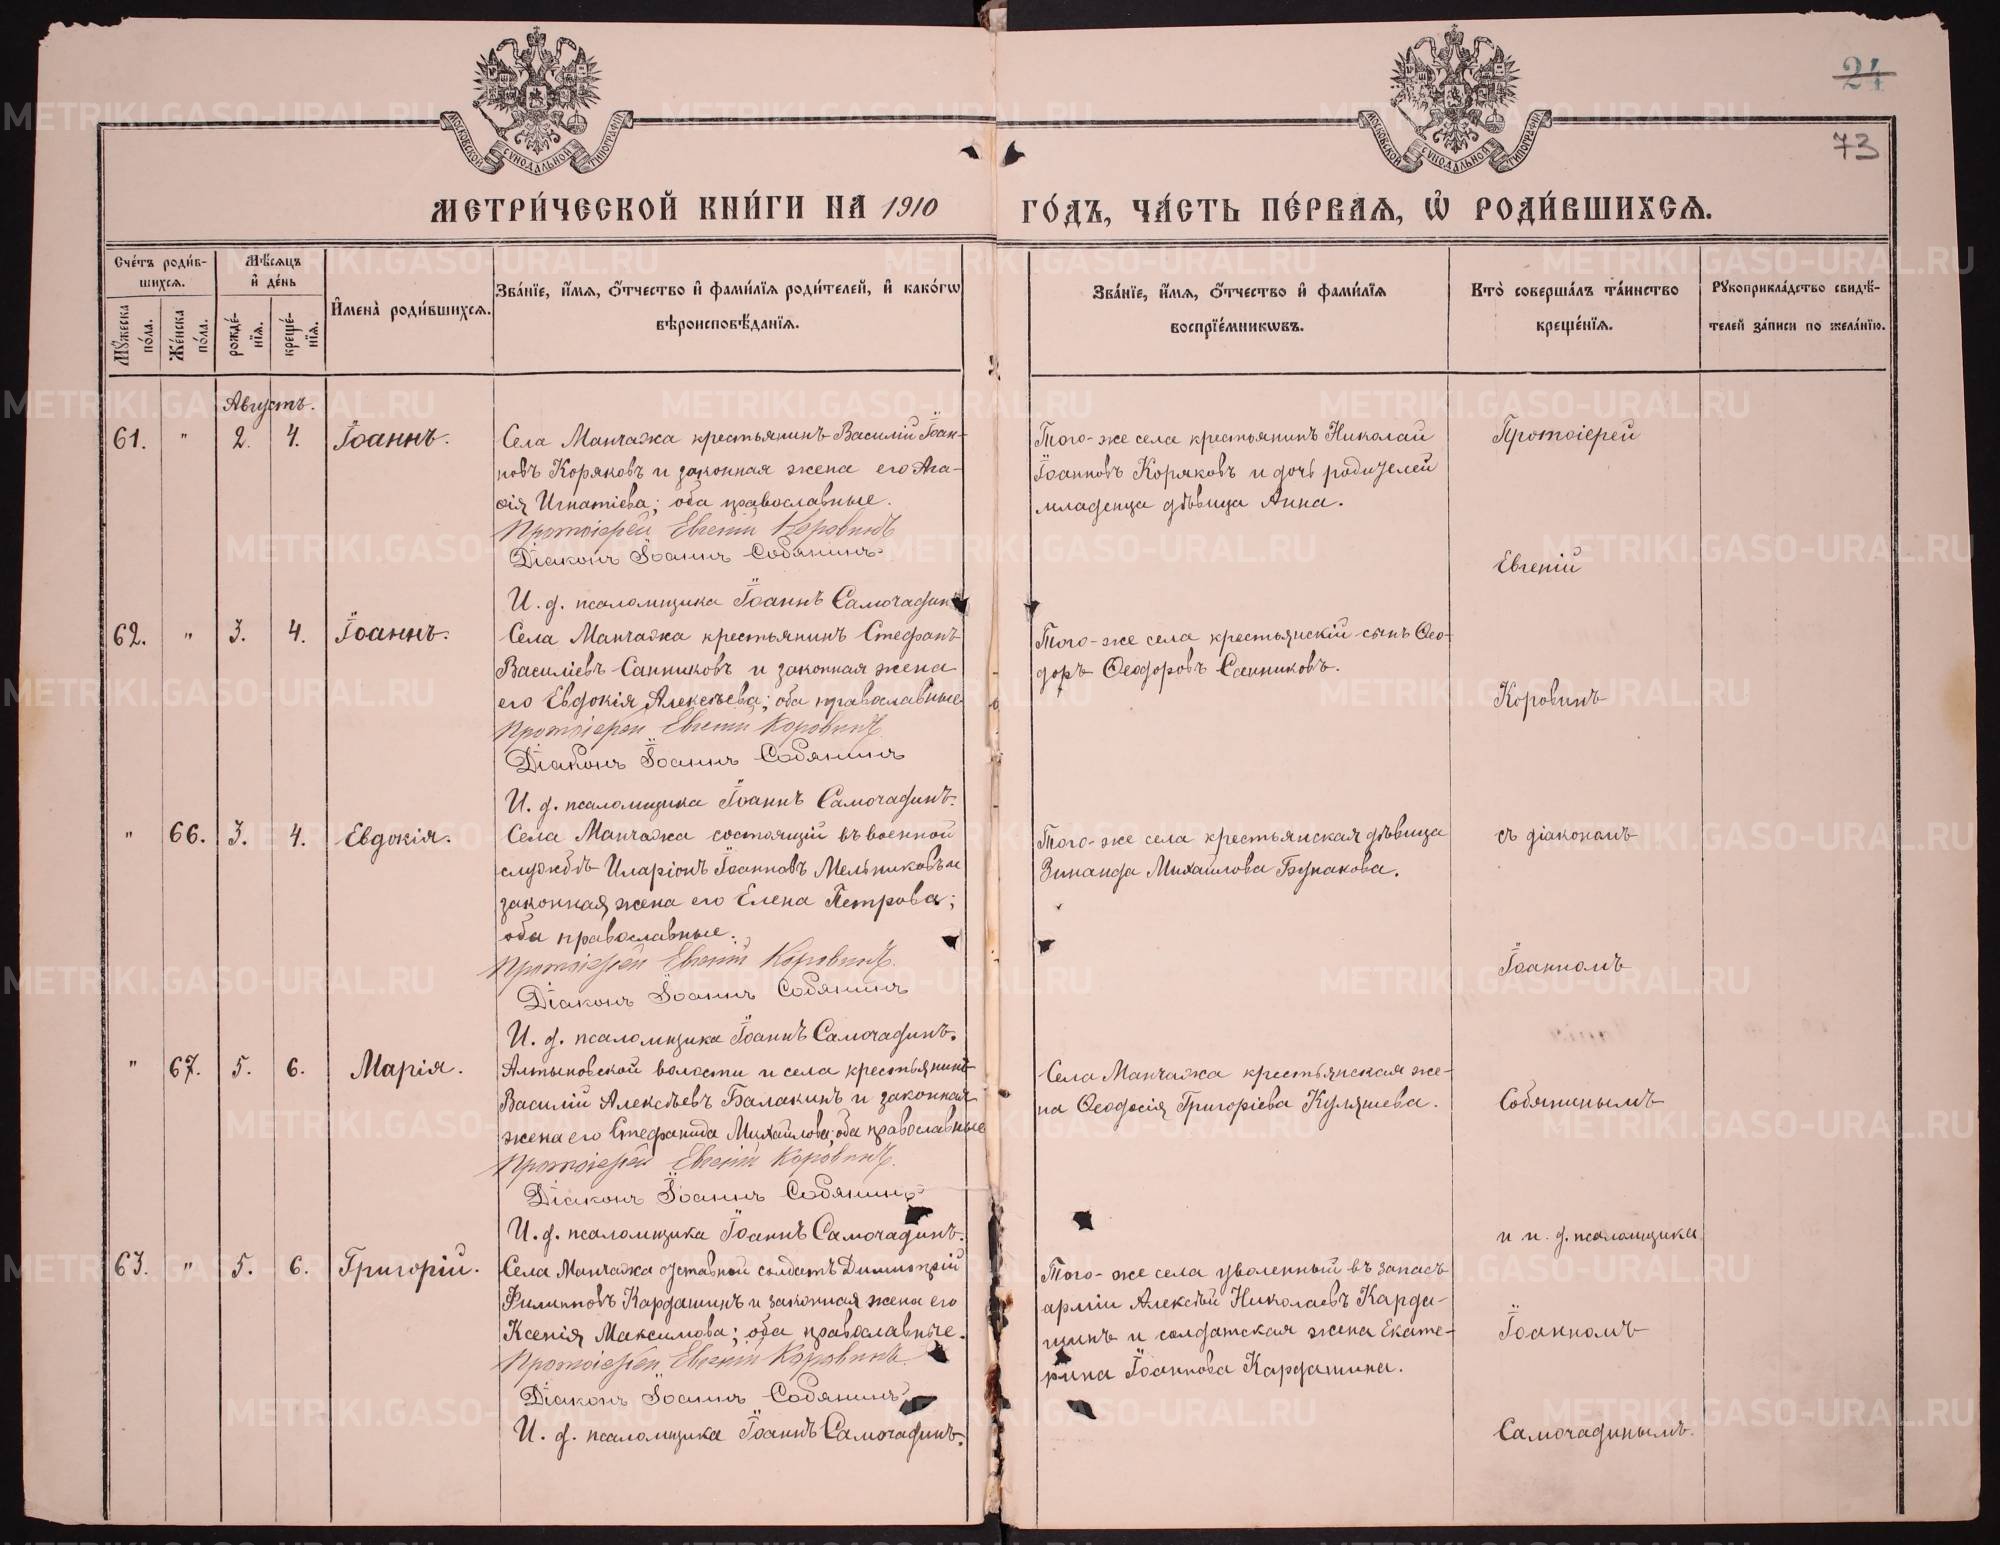 24
73
МОСКОВСКОЙ СѴНОДАЛЬНОЙ ТИПОГРАФІИ
МОСКОВСКОЙ СѴНОДАЛЬНОЙ ТИПОГРАФІИ
МЕТРИ́ЧЕСКОЙ КНИ́ГИ НА 1910 ГО́ДЪ, ЧА́СТЬ ПЕ́РВАЯ, Ѽ РОДИ́ВШИХСЯ.
Сче́тъ роди́в-
шихся.
Мѣ́сяцъ
и҆ де́нь
Мꙋ́жеска по́ла.
Же́нска по́ла.
рожде́-
нїя.
креще́-
нїя.
И҆мена̀ роди́вшихся.
Зва́нїе, и҆́мя, о҆́тчество и҆ фами́лїя роди́телей, и҆ како́гѡ
вѣроисповѣ́данїя.
Зва́нїе, и҆́мя, о҆́тчество и҆ фами́лїя
воспрїе́мникѡвъ.
Кто̀ соверша́лъ та́инство
креще́нїя.
Рꙋкоприкла́дство свидѣ́-
телей за́писи по жела́нїю.
Августъ.
61. " 2. 4. Іоаннъ.
Села Манчажа крестьянинъ Василій Іоан-
новъ Коряковъ и законная жена его Ага-
ѳія Игнатіева; оба православные.
Протоіерей Евгеній Коровинъ
Діаконъ Іоаннъ Собянинъ
И. д. псаломщика Іоаннъ Самочадинъ
Того-же села крестьянинъ Николай
Іоанновъ Коряковъ и дочь родителей
младенца дѣвица Анна.
Протоіерей
Евгеній
62. " 3. 4. Іоаннъ.
Села Манчажа крестьянинъ Стефанъ
Василіевъ Санниковъ и законная жена
его Евдокія Алексѣева; оба православные
Протоіерей Евгеній Коровинъ
Діаконъ Іоаннъ Собянинъ
И. д. псаломщика Іоаннъ Самочадинъ.
Того-же села крестьянскій сынъ Ѳео-
доръ Ѳеодоровъ Санниковъ.
Коровинъ
" 66. 3. 4. Евдокія.
Села Манчажа состоящій въ военной
службѣ Иларіонъ Іоанновъ Мельниковъ и
законная жена его Елена Петрова;
оба православные.
Протоіерей Евгеній Коровинъ
Діаконъ Іоаннъ Собянинъ
И. д. псаломщика Іоаннъ Самочадинъ.
Того-же села крестьянская дѣвица
Зинаида Михаилова Бунакова.
съ діакономъ
Іоанномъ
" 67. 5. 6. Марія.
Алтыновской волости и села крестьянинъ
Василій Алексѣевъ Балакинъ и законная
жена его Стефанида Михаилова; оба православные
Протоіерей Евгеній Коровинъ.
Діаконъ Іоаннъ Собянинъ
И. д. псаломщика Іоаннъ Самочадинъ.
Села Манчажа крестьянская же-
на Ѳеодосія Григоріева Куляшева.
Собянинымъ
и и. д. псаломщика
63. " 5. 6. Григорій.
Села Манчажа отставной солдатъ Димитрій
Филипповъ Кардашинъ и законная жена его
Ксенія Максимова; оба православные.
Протоіерей Евгеній Коровинъ.
Діаконъ Іоаннъ Собянинъ
И. д. псаломщика Іоаннъ Самочадинъ.
Того-же села уволенный въ запасъ
арміи Алексѣй Николаевъ Карда-
шинъ и солдатская жена Екате-
рина Іоаннова Кардашина.
Іоанномъ
Самочадинымъ.